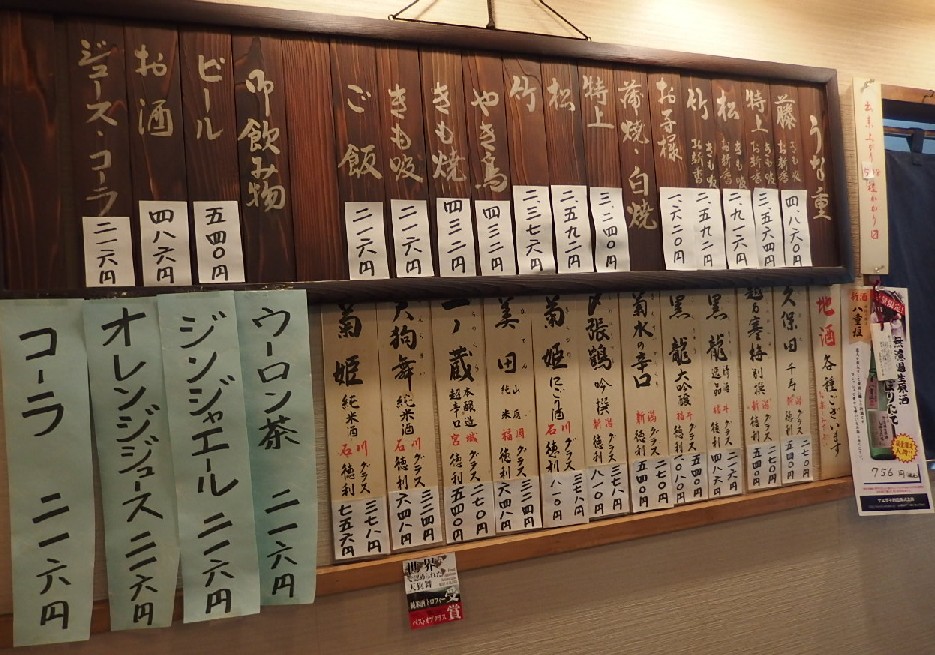 うな重
藤 きも吸 お新香 四、八六〇円
特上 きも吸 お新香 三、五六四円
松 きも吸 お新香 二、九一六円
竹 きも吸 お新香 二、五九二円
お子様 一、六二〇円
蒲焼 白焼
特上 三、二四〇円
松 二、五九二円
竹 二、三七六円
やき鳥 四三二円
きも焼 四三二円
きも吸 二一六円
ご飯 二一六円
御飲み物
ビール 五四〇円
お酒 四八六円
ジュース・コーラ 二一六円
地酒 各種ございます
久保田 千寿 新潟 グラス 二七〇円 徳利 五四〇円
越乃寒梅 別撰 新潟 グラス 二七〇円 徳利 五四〇円
黒龍 逸品 福井 グラス 二一六円 徳利 四八六円
黒龍 大吟醸 福井
菊水の辛口 新潟 グラス 二七〇円 徳利 五四〇円
〆張鶴 吟撰 新潟 グラス 三七八円 徳利 八一〇円
菊姫 にごり酒 石川 グラス 三七八円 徳利 八一〇円
美田 山廃 純米 福岡 グラス 三二四円 徳利 六四八円
一ノ蔵 本醸造 超辛口 宮城 グラス 二七〇円 徳利 五四〇円
天狗舞 純米酒 石川 グラス 三二四円 徳利 六四八円
菊姫 純米酒 石川 グラス 三七八円 徳利 七五六円
ウーロン茶 二一六円
ジンジャエール 二一六円
オレンジジュース 二一六円
コーラ 二一六円
無濾過生原酒
しぼりたて
756円
世界
天狗舞
純米酒トロフィー受賞
ベストオブクラス